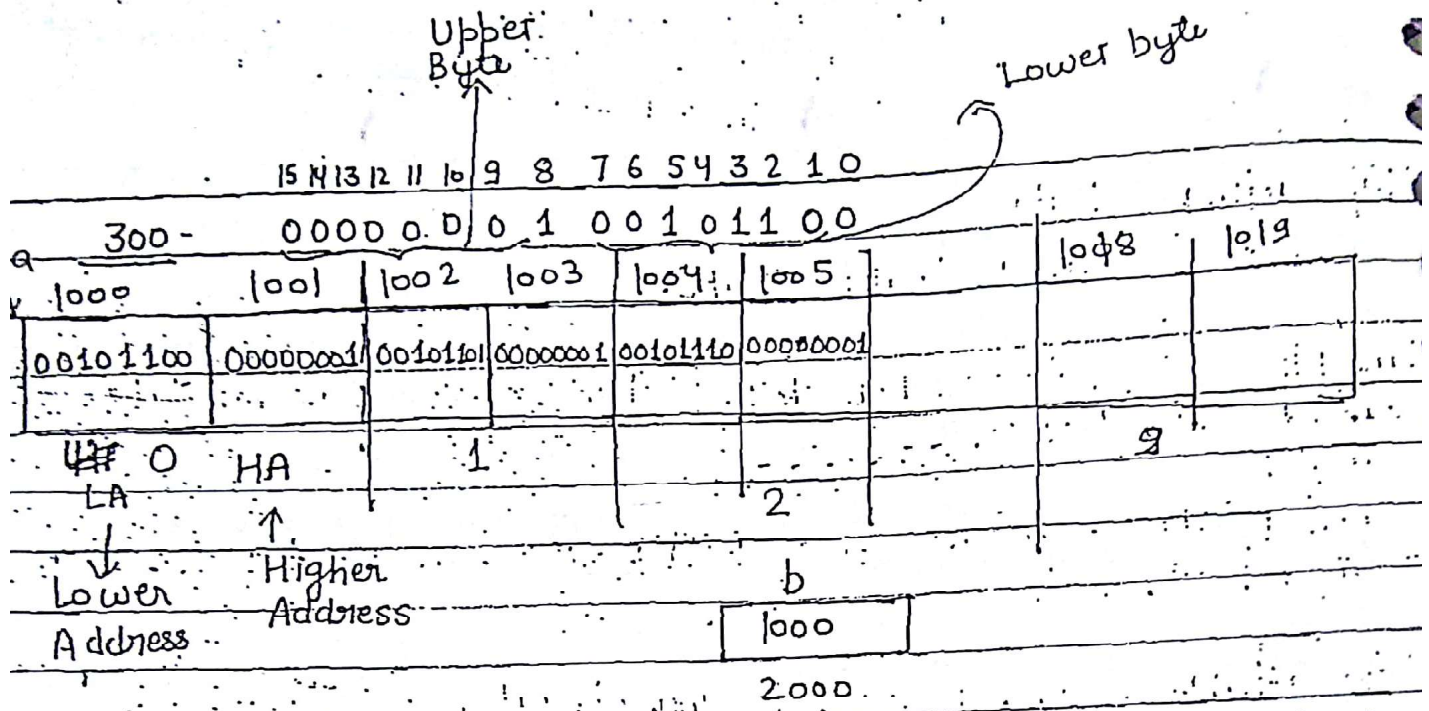 Upper
Byte
Lower byte
15 14 13 12 11 10 9 8 7 6 5 4 3 2 1 0
300 - 0000 0.0 0 1 0 0 1 0 1 1 0 0
a 1000 1001 1002 1003 1004 1005 1018 1019
00101100 00000001 00101101 00000001 00101110 00000001
0 HA 1 2 9
LA
Lower
Address
Higher
Address
b
1000
2000